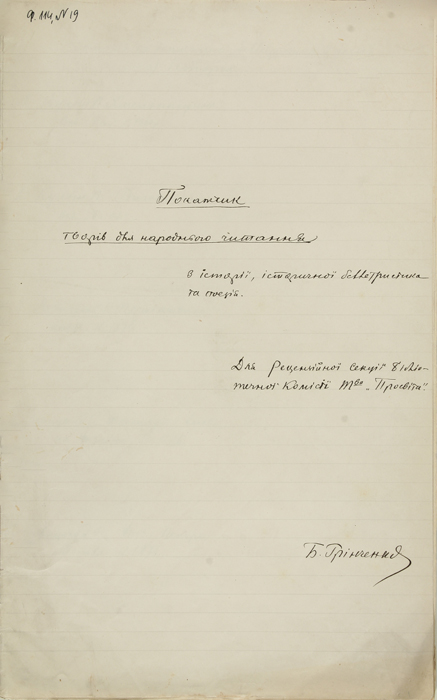 Ф. 114, № 19
Показчик
творів для народнього читання
з історії, історичної беллетристики
та поезії.
Для Рецензійної секції бібліо-
течної комісії Т-ва „Просвіта".
Б. Грінченко